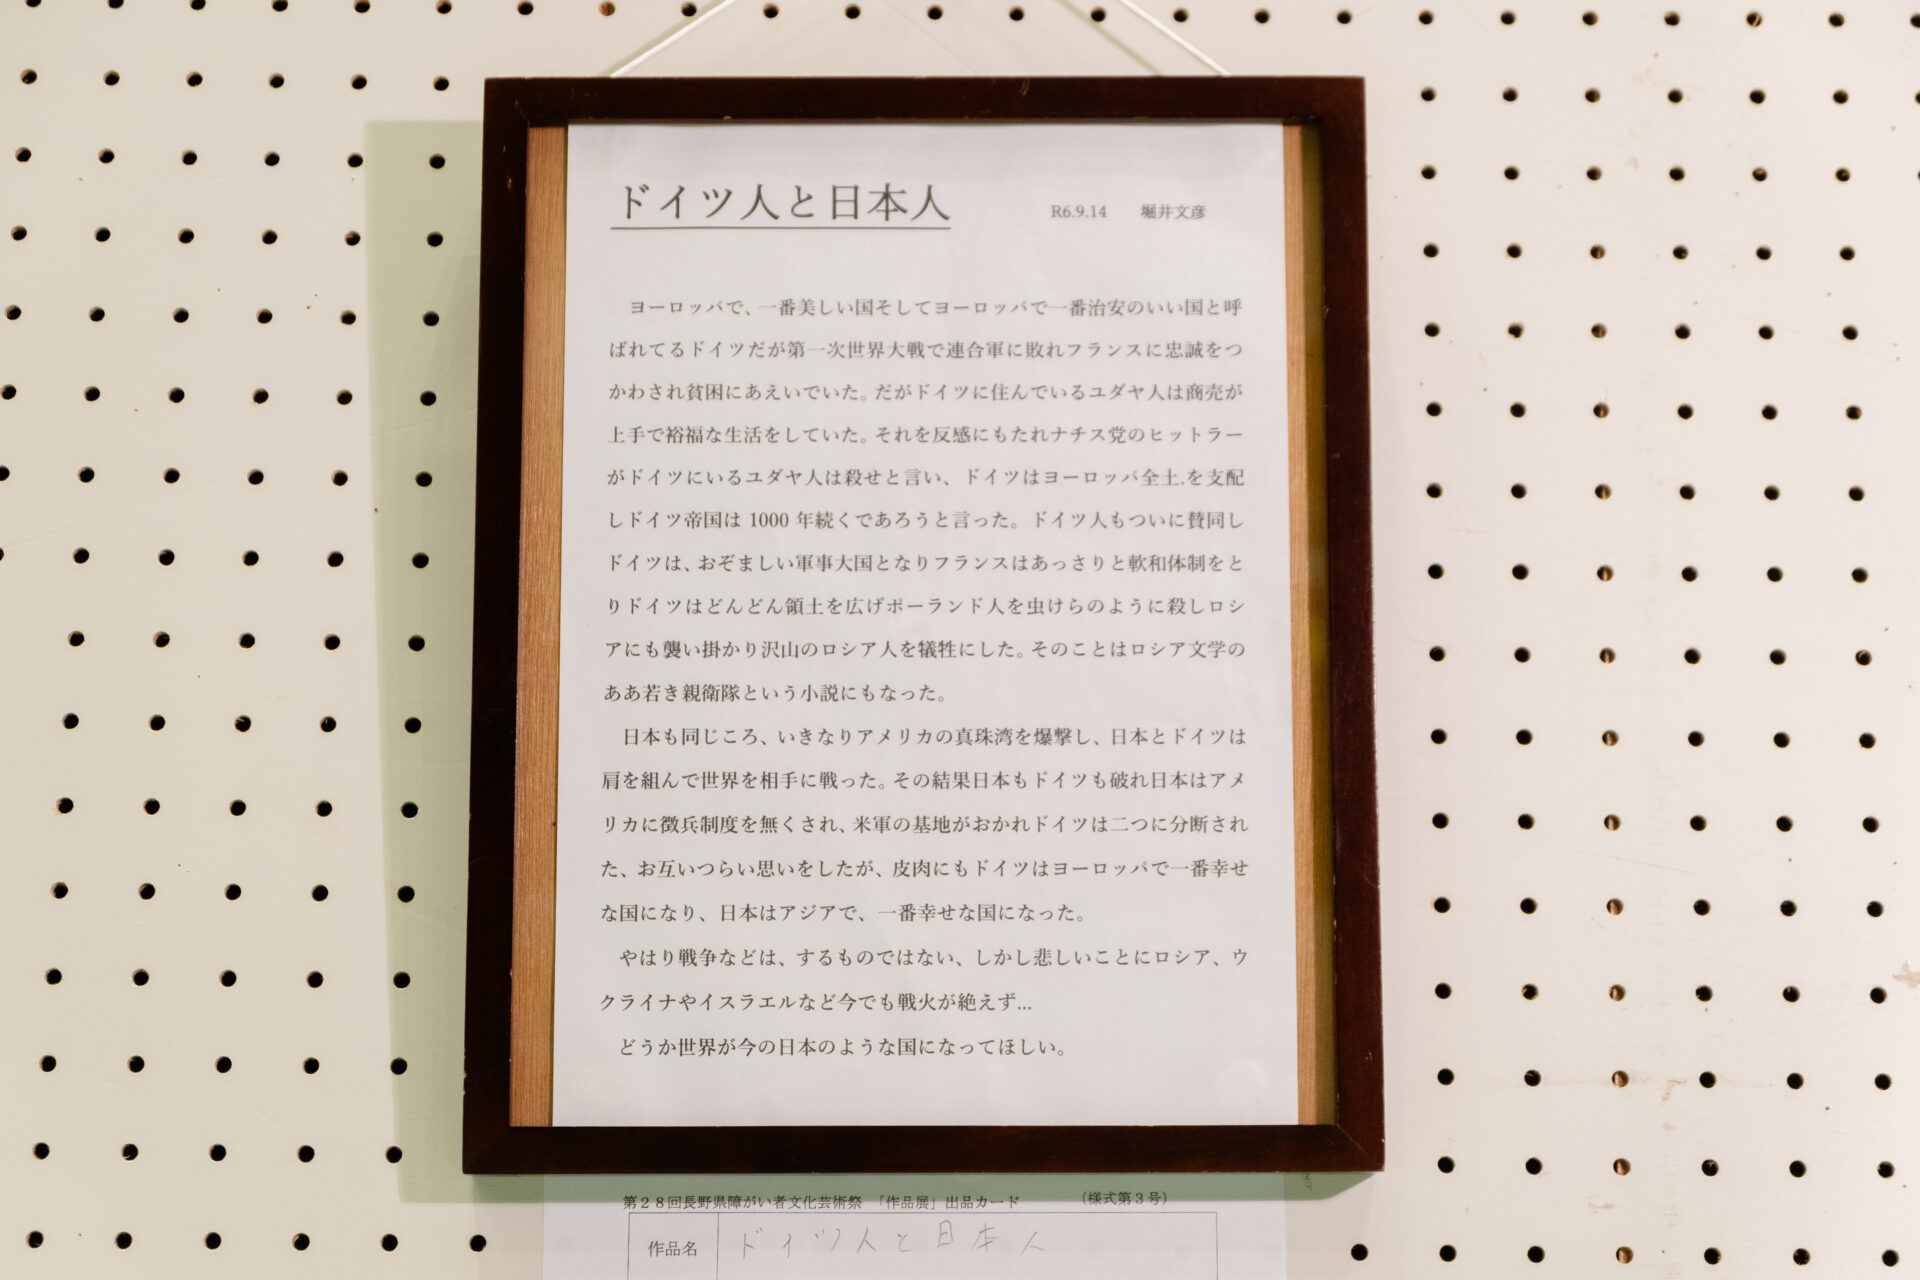 ドイツ人と日本人 R6.9.14 堀井文彦
ヨーロッパで、一番美しい国そしてヨーロッパで一番治安のいい国と呼
ばれてるドイツだが第一次世界大戦で連合軍に敗れフランスに忠誠をつ
かわされ貧困にあえいでいた。だがドイツに住んでいるユダヤ人は商売が
上手で裕福な生活をしていた。それを反感にもたれナチス党のヒットラー
がドイツにいるユダヤ人は殺せと言い、ドイツはヨーロッパ全土.を支配
しドイツ帝国は 1000 年続くであろうと言った。ドイツ人もついに賛同し
ドイツは、おぞましい軍事大国となりフランスはあっさりと軟和体制をと
りドイツはどんどん領土を広げポーランド人を虫けらのように殺しロシ
アにも襲い掛かり沢山のロシア人を犠牲にした。そのことはロシア文学の
ああ若き親衛隊という小説にもなった。
日本も同じころ、いきなりアメリカの真珠湾を爆撃し、日本とドイツは
肩を組んで世界を相手に戦った。その結果日本もドイツも破れ日本はアメ
リカに徴兵制度を無くされ、米軍の基地がおかれドイツは二つに分断され
た、お互いつらい思いをしたが、皮肉にもドイツはヨーロッパで一番幸せ
な国になり、日本はアジアで、一番幸せな国になった。
やはり戦争などは、するものではない、しかし悲しいことにロシア、ウ
クライナやイスラエルなど今でも戦火が絶えず...
どうか世界が今の日本のような国になってほしい。
第２８回長野県障がい者文化芸術祭 「作品展」出品カード （様式第３号）
作品名 ドイツ人と日本人